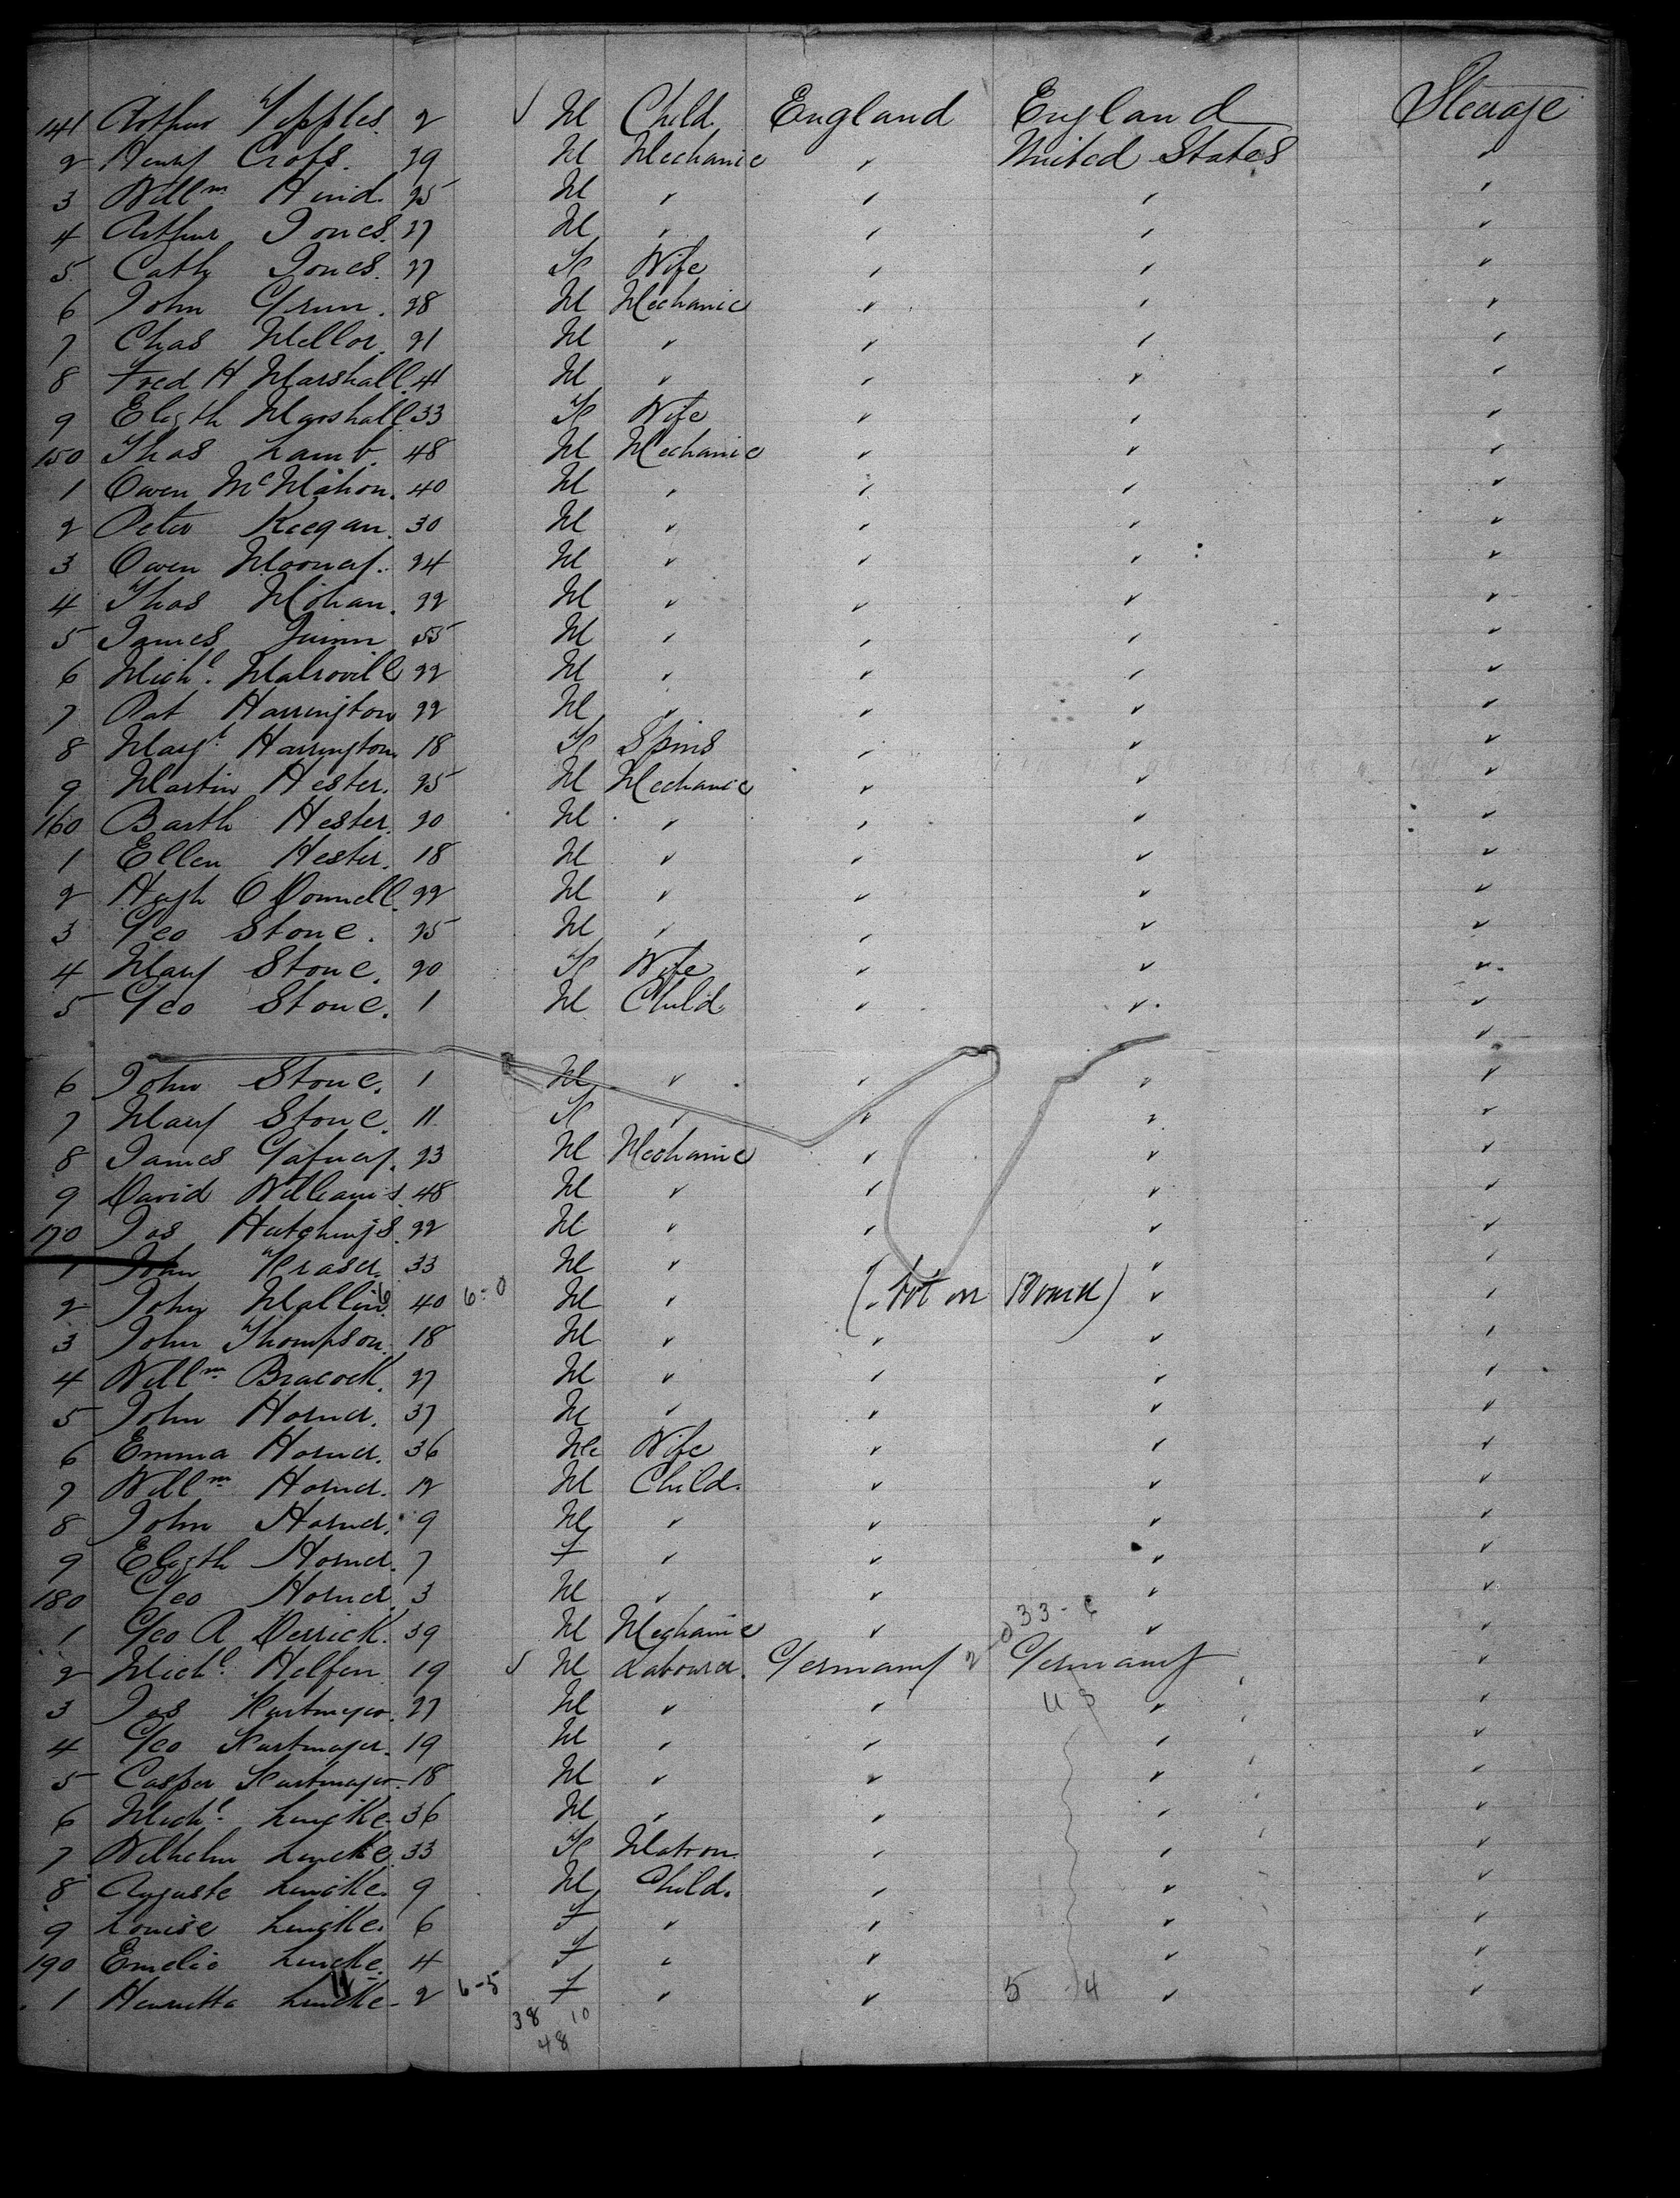 141 Arthur Tipples. 2 √ M Child England England Steerage
2 Henry Crofs. 29 M Mechanic " United States "
3 Willm Hind. 25 M " " " "
4 Arthur Jones. 27 M " " " "
5 Cath Jones. 27 F Wife " " "
6 John Grun. 28 M Mechanic " " "
7 Chas Mellor. 21 M " " " "
8 Fred H Marshall. 41 M " " " "
9 Elizth Marshall. 33 F Wife " " "
150 Thos Lamb. 48 M Mechanic " " "
1 Owen McMahon. 40 M " " " "
2 Peter Keegan. 30 M " " " "
3 Owen Mooney. 24 M " " " "
4 Thos Mohan. 22 M " " " "
5 James Quinn 55 M " " " "
6 Michl. 22 M " " " "
7 Pat Harrington 22 M " " " "
8 Margt Harrington 18 F Spins " " "
9 Martin Hester. 25 M Mechanic " " "
160 Barth Hester. 20 M " " " "
1 Ellen Hester. 18 M " " " "
2 Hugh O Donnell. 22 M " " " "
3 Geo Stone. 25 M " " " "
4 Mary Stone. 20 F Wife " " "
5 Geo Stone. 1 M Child " " "
"
6 John Stone. 1 M " " " "
7 Mary Stone. 11 F " " " "
8 James Gafney. 23 M Mechanic " " "
9 David Williams. 48 M " " " "
170 Jos Hutchings. 22 M " " " "
1 John Fraser. 33 M " " " "
2 John Mallin 40 6-0 M " " (Not on Board) " "
3 John Thompson. 18 M " " " "
4 Willm Bracock. 27 M " " " "
5 John Horner. 37 M " " " "
6 Emma Horner. 36 M Wife " " "
7 Willm Horner. 12 M Child. " " "
8 John Horner. 9 M " " " "
9 Elizth Horner. 7 F " " " "
180 Geo Horner. 3 M " " " "
1 Geo A Derrick. 39 M Mechanic " 33-6 " "
2 Michl. Helfen 19 √ M Labourer. Germany Germany "
3 Jos Hartmeyer. 27 M " " U S " "
4 Geo Hartmayer. 19 M " " " "
5 Casper Hartmayer. 18 M " " " "
6 Michl. Lincke. 36 M " " " "
7 Wilhelm Lincke. 33 F Matron. " " "
8 Auguste Lincke. 9 M Child. " " "
9 Louise Lincke. 6 F " " " "
190 Emelie Lincke. 4 F " " " "
1 Henrietta Lincke 2 6-5 F " " 5 4 " "
11 38 10
48